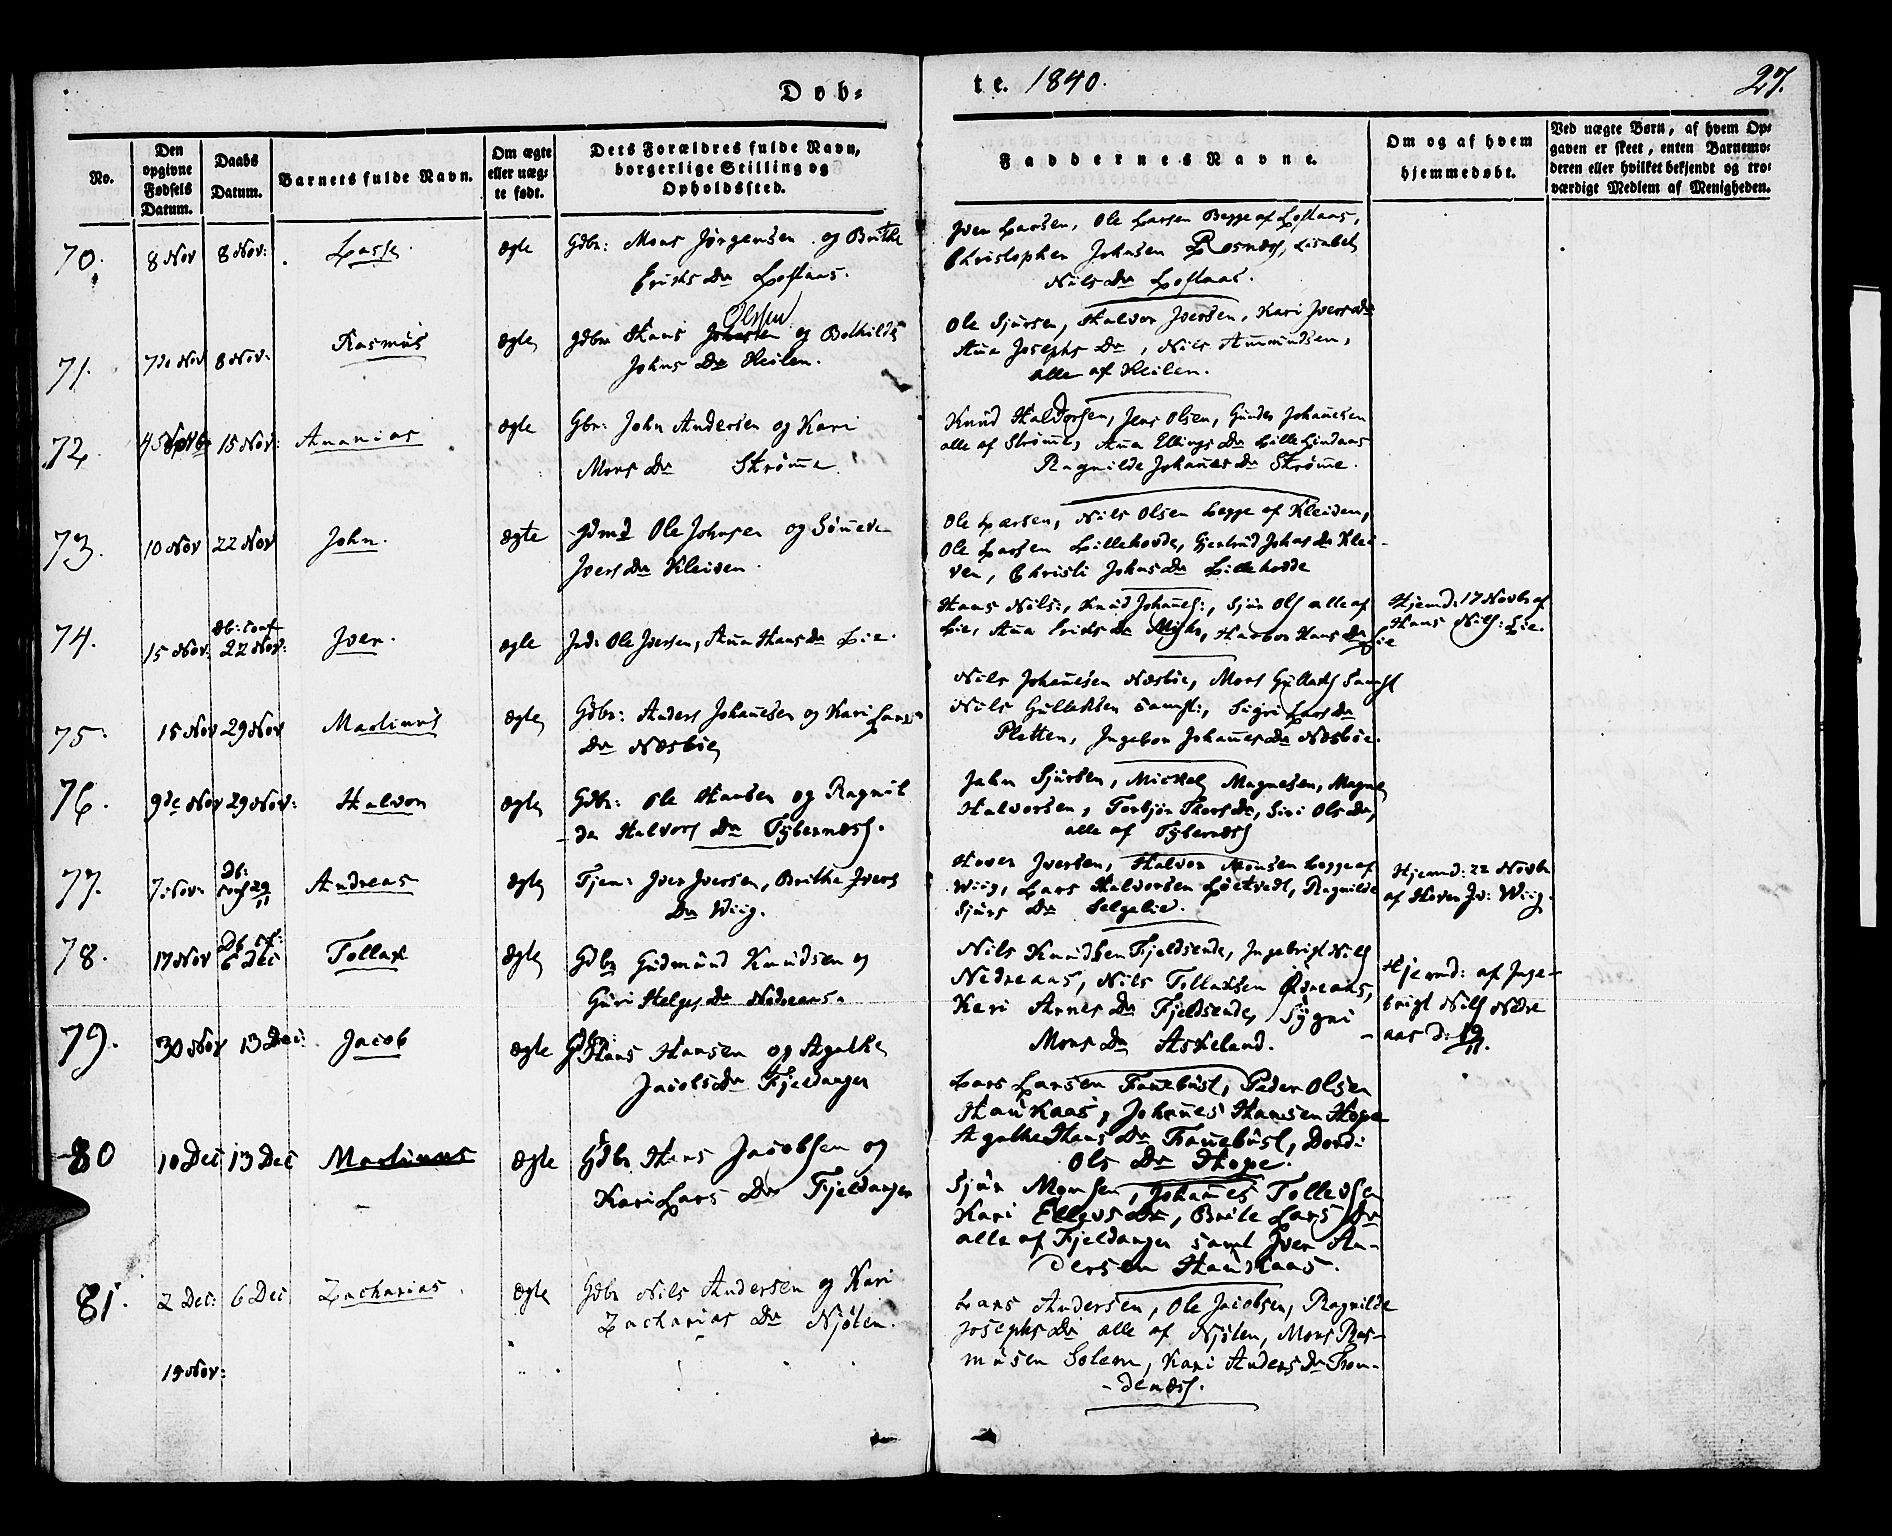 Døb=
te. 1840.
27.
No.
Den
opgivne
Fødsels
Datum.
Daabs
Datum.
Barnets fulde Navn.
Om ægte
eller uæg=
te født.
Dets Forældres fulde Navn,
borgerlige Stilling og
Opholdssted.
Faddernes Navne.
Om og af hvem
hjemmedøbt.
Ved uægte Børn, af hvem Op=
gaven er skeet, enten Barnemo=
deren eller hvilket bekjendt og tro=
værdigt Medlem af Menigheden.
70.
8 Nov
8 Nov:
Lasse.
ægte
Gdbr: Mons Jørgensen og Brithe
Eriks Dr Loftaas.
Iver Larsen, Ole Larsen Begge af Loftaas,
Christopher Johnsen Rosnæs, Lisabet
Nils Dr Loftaas.
71.
7de Nov
8 Nov:
Rasmus
ægte
Olsen
Gdbr Hans og Bothilde
Johns Dr Keilen.
Ole Sjursen, Halvor Iversen, Kari Ivers Dr
Ana Josephs Dr, Nils Ammundsen,
alle af Keilen.
72.
15 Nov:
Ananias
ægte
Gbr: John Andersen og Kari
Mons Dr Strømme.
Knud Haldorsen, Jens Olsen, Gunder Johanesen
alle af Strømme, Ana Ellings Dr Lille Lindaas
Ragnilde Johanes Dr Strøme.
73.
10 Nov
22 Nov
John.
ægte
Gdmd Ole Johnsen og Søneve
Ivers Dr Kleiven.
Ole Larsen, Nils Olsen begge af Kleiven,
Ole Larsen Lillehovde, Gjertrud Johns Dr Klei-
ven, Christi Johns Dr Lillehovde
74.
15 Nov:
Db: conf
22 Nov:
Iver.
ægte
Ind: Ole Iversen, Ana Hans Dr Lie.
Hans Nils:, Knud Johanes:, Sjur Ols alle af
Lie, Ana Eriks Dr Hans Dr Lie
Hjemd: 17 Novbr af
Hans Nils: Lie.
75.
15 Nov
29 Nov
Martinus
ægte
Gdbr: Anders Johanesen og Kari Lars
Dr Næsbøe
Nils Johanesen Næsbøe, Mons Gullachs Samst
Nils Gullaksen samst:, Sigri Lars Dr
Pletten, Ingebor Johanes Dr Næsbøe.
76.
9de Nov
29 Nov:
Halvor
ægte
Gdbr: Ole Hansen og Ragnil
da Halvors Dr Tybernæs.
John Sjursen, Mickel Magnesen, Magne
Halvorsen, Torbjør Thors Dr, Siri Ols Dr,
alle af Tybernæs
77.
7: Nov:
Db:
conf 29
11
Andreas
ægte
Tjen: Iver Iversen, Brithe Ivers
Dr Wiig.
Hover Iversen, Halvor Monsen begge af
Wiig, Lars Halvorsen Løetvedt, Ragnilde
Sjurs Dr Helgelie.
Hjemd: 22 Novbr
af Hover Iv: Wiig.
78.
17 Nov
Db cf:
6 Dec
Tollak
ægte
Gdbr Gudmund Knudsen og
Guri Helges Dr Nedreaas.
Nils Knudsen Fjeldsende, Ingebrigt Nils
Nedreaas, Nils Tollaksen Øvreaas,
Kari Arnes Dr Fjeldsende, Sygni
Mons Dr Askeland.
Hjemd: af Inge-
brigt Nils Nedre
aas d: 19
11.
79.
30 Nov
13 Dec:
Jacob
ægte
Gdbr: Hans Hansen og Agathe
Jacobs Dr Fjeldanger
Lars Larsen Fanebust, Peder Olsen
Haukaas, Johanes Hansen Hope
Agathe Hans Dr Fanebust, Dordi
Ols Dr Hope.
80
10 Dec
13 Dec
Martinus
ægte
Gdbr Hans Jacobsen og
Kari Lars Dr Fjeldanger
Sjur Monsen, Johanes Tollevsen
Kari Ellevs Dr, Brite Lars Dr
alle af Fjeldanger samt Iver An-
dersen Haukaas.
81.
2 Dec:
6 Dec
Zacharias
ægte
Gdbr Nils Andersen og Kari
Zacharias Dr Njøten.
Lars Andersen, Ole Jacobsen, Ragnilde
Josephs Dr alle af Njøten, Mons Ras-
musen Solem, Kari Anders Dr Tron-
denæs.
19 Nov: